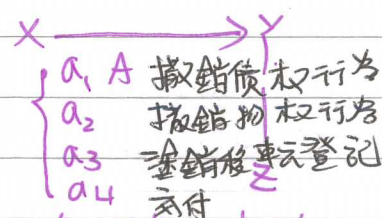 X → Y
a1 A 撤銷債权行为
a2 撤銷物权行为
a3 塗銷移転登記
Z
a4 交付